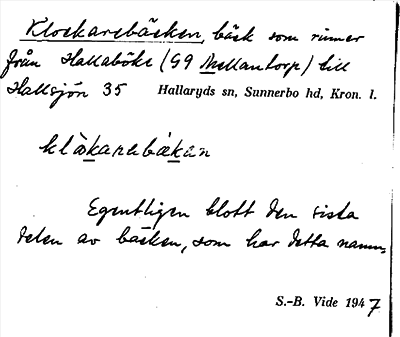 Klockarebäcken, bäck som rinner
från Hallaböke (G9 Mellantorp) till
Hallsjön 35 Hallaryds sn, Sunnerbo hd, Kron. l.
klòkarebäkän
Egentligen blott den sista
delen av bäcken, som har detta namn.
S.-B. Vide 1947